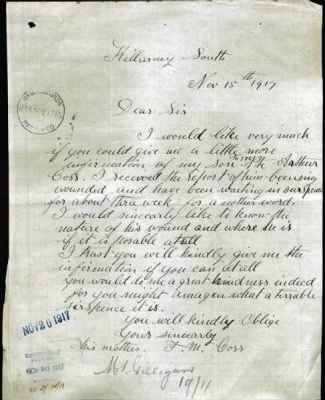 Killarney South
Nov 15th 1917
Dear Sir
I would like very much
if you could give me a little more
information of my son Pte Arthur
Coss. I received the report of him being
wounded, and have been waiting in
for about thra week for a nother word.
I would sincerly like to know the
nature of his wound and where he is
if it is posable atall
I trust you will kindly give me the
information if you can at all
you would do me a great kindness indeed
for you might amagen what a terrable
it is.
You will kindly Oblige
Yours sincerly
his mother.
Coss
NOV 20 1917
19/11